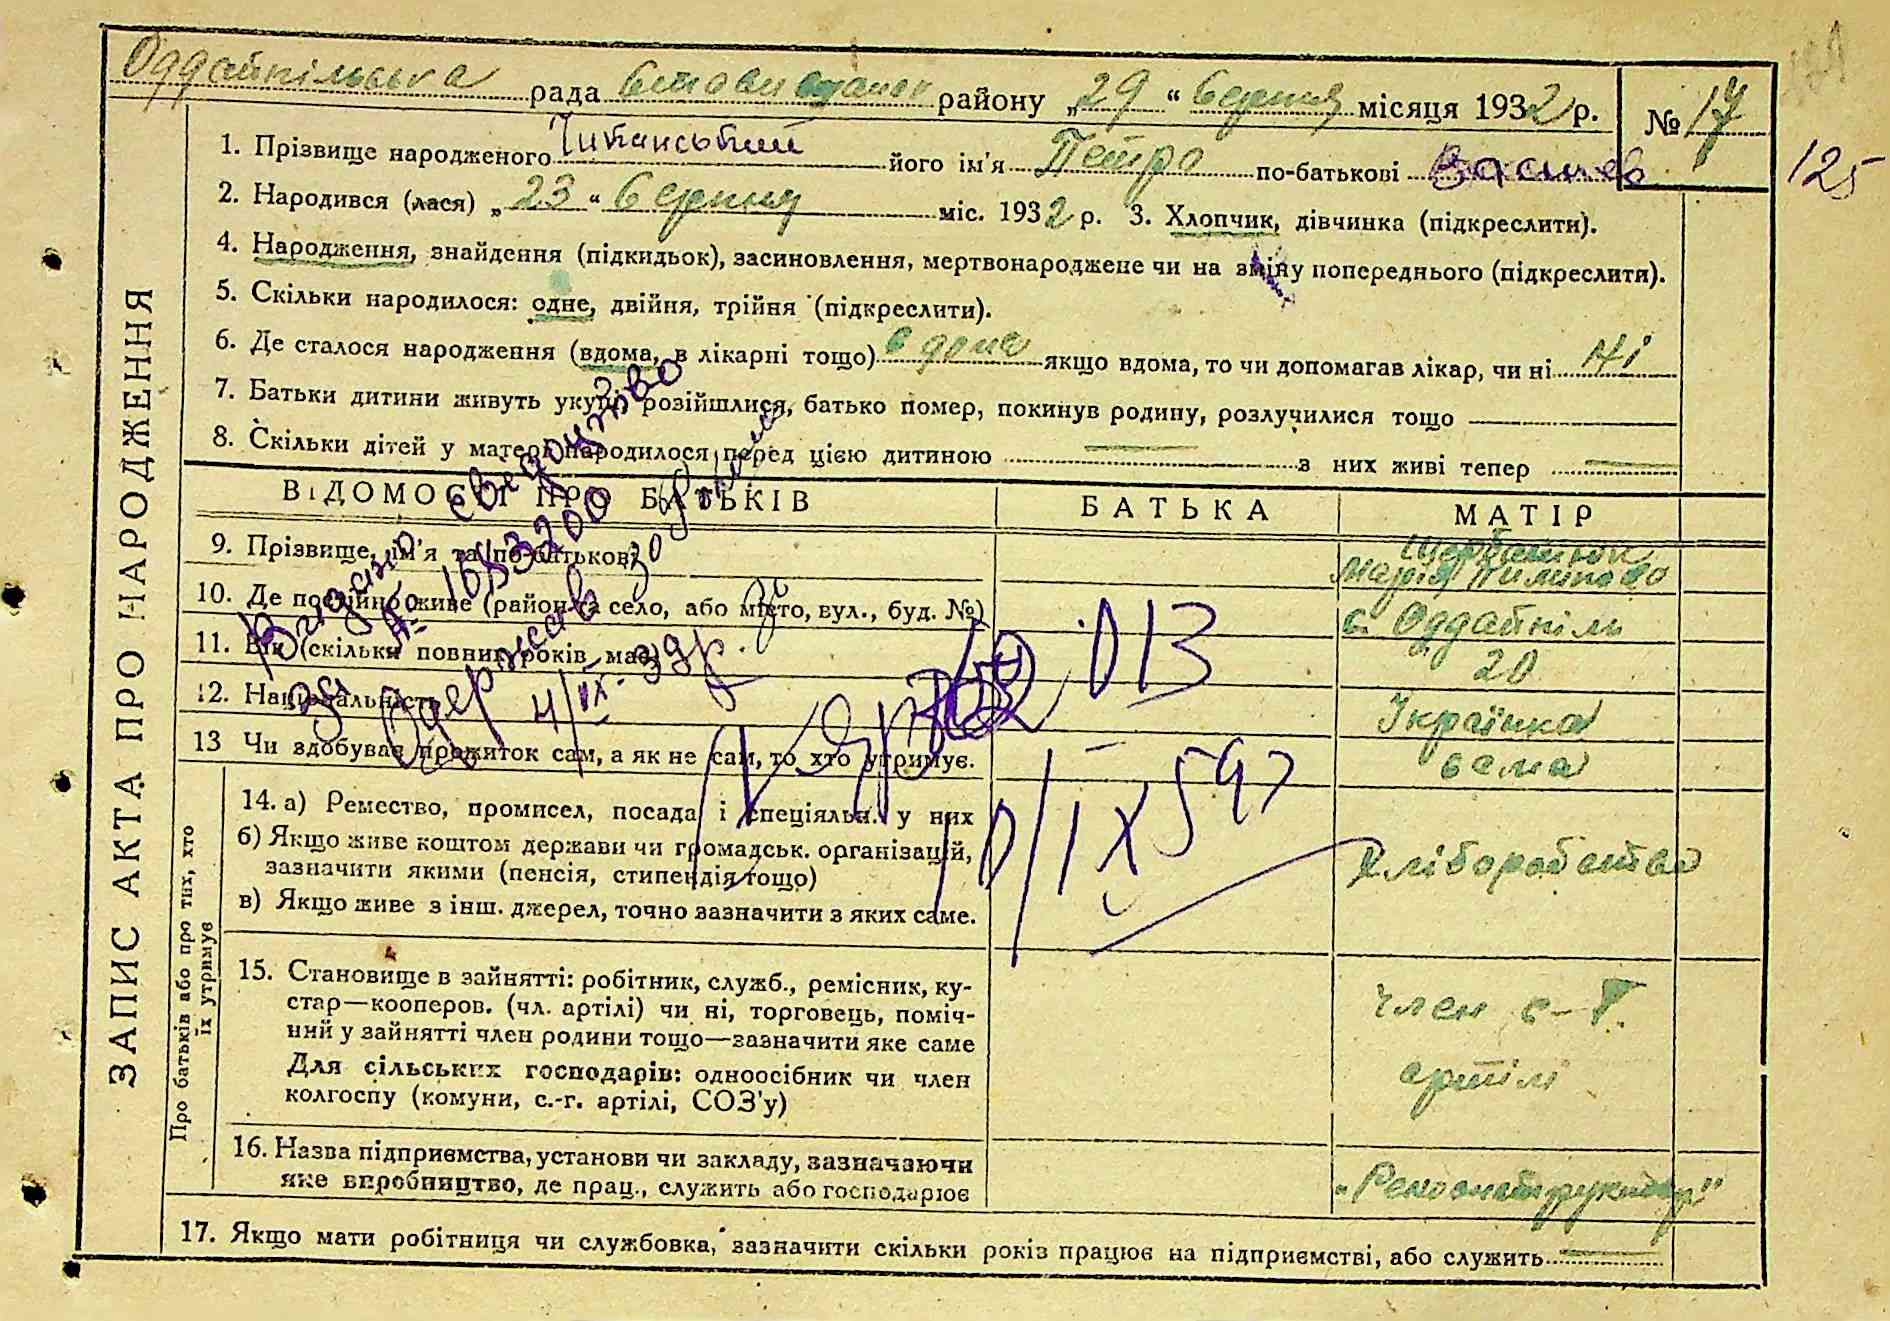 Оддайпільська рада району „29“ Серпня місяця 1932 р. № 17
125
1. Прізвище народженого його ім'я Петро по-батькові Васильев
2. Народився (лася) „23“ Серпня міс. 1932 р. 3. Хлопчик, дівчинка (підкреслити).
4. Народження, знайдення (підкидьок), засиновлення, мертвонароджене чи на зміну попереднього (підкреслити).
5. Скільки народилося: одне, двійня, трійня (підкреслити).
6. Де сталося народження (вдома, в лікарні тощо) якщо вдома, то чи допомагав лікар, чи ні Ні
7. Батьки дитини живуть укупі, розійшлися, батько помер, покинув родину, розлучилися тощо
8. Скільки дітей у матери народилося перед цією дитиною з них живі тепер
ВІДОМОСТІ ПРО БАТЬКІВ БАТЬКА МАТІР
9. Прізвище, ім'я та по-батькові
Марія Пилипово
10. Де постійно живе (район та село, або місто, вул., буд. №) с. Оддайпіль
11. Вік (скільки повних років має) 20
12. Національність Українка
13 Чи здобував прожиток сам, а як не сам, то хто утримує. сама
14. а) Ремество, промисел, посада і спеціяльн. у них
б) Якщо живе коштом держави чи громадськ. організацій,
зазначити якими (пенсія, стипендія тощо) Хліборобство
в) Якщо живе з інш. джерел, точно зазначити з яких саме.
15. Становище в зайнятті: робітник, служб., ремісник, ку-
стар—кооперов. (чл. артілі) чи ні, торговець, поміч- член с-г.
ний у зайнятті член родини тощо—зазначити яке саме
Для сільських господарів: одноосібник чи член артілі
колгоспу (комуни, с.-г. артілі, СОЗ'у)
16. Назва підприємства, установи чи закладу, зазначаючи
яке виробництво, де прац., служить або господарює
17. Якщо мати робітниця чи службовка, зазначити скільки років працює на підприємстві, або служить
ЗАПИС АКТА ПРО НАРОДЖЕННЯ
Про батьків або про тих, хто
їх утримує
Видано свидоцтво
за № 1683200
Одержав
4/IX-32р.